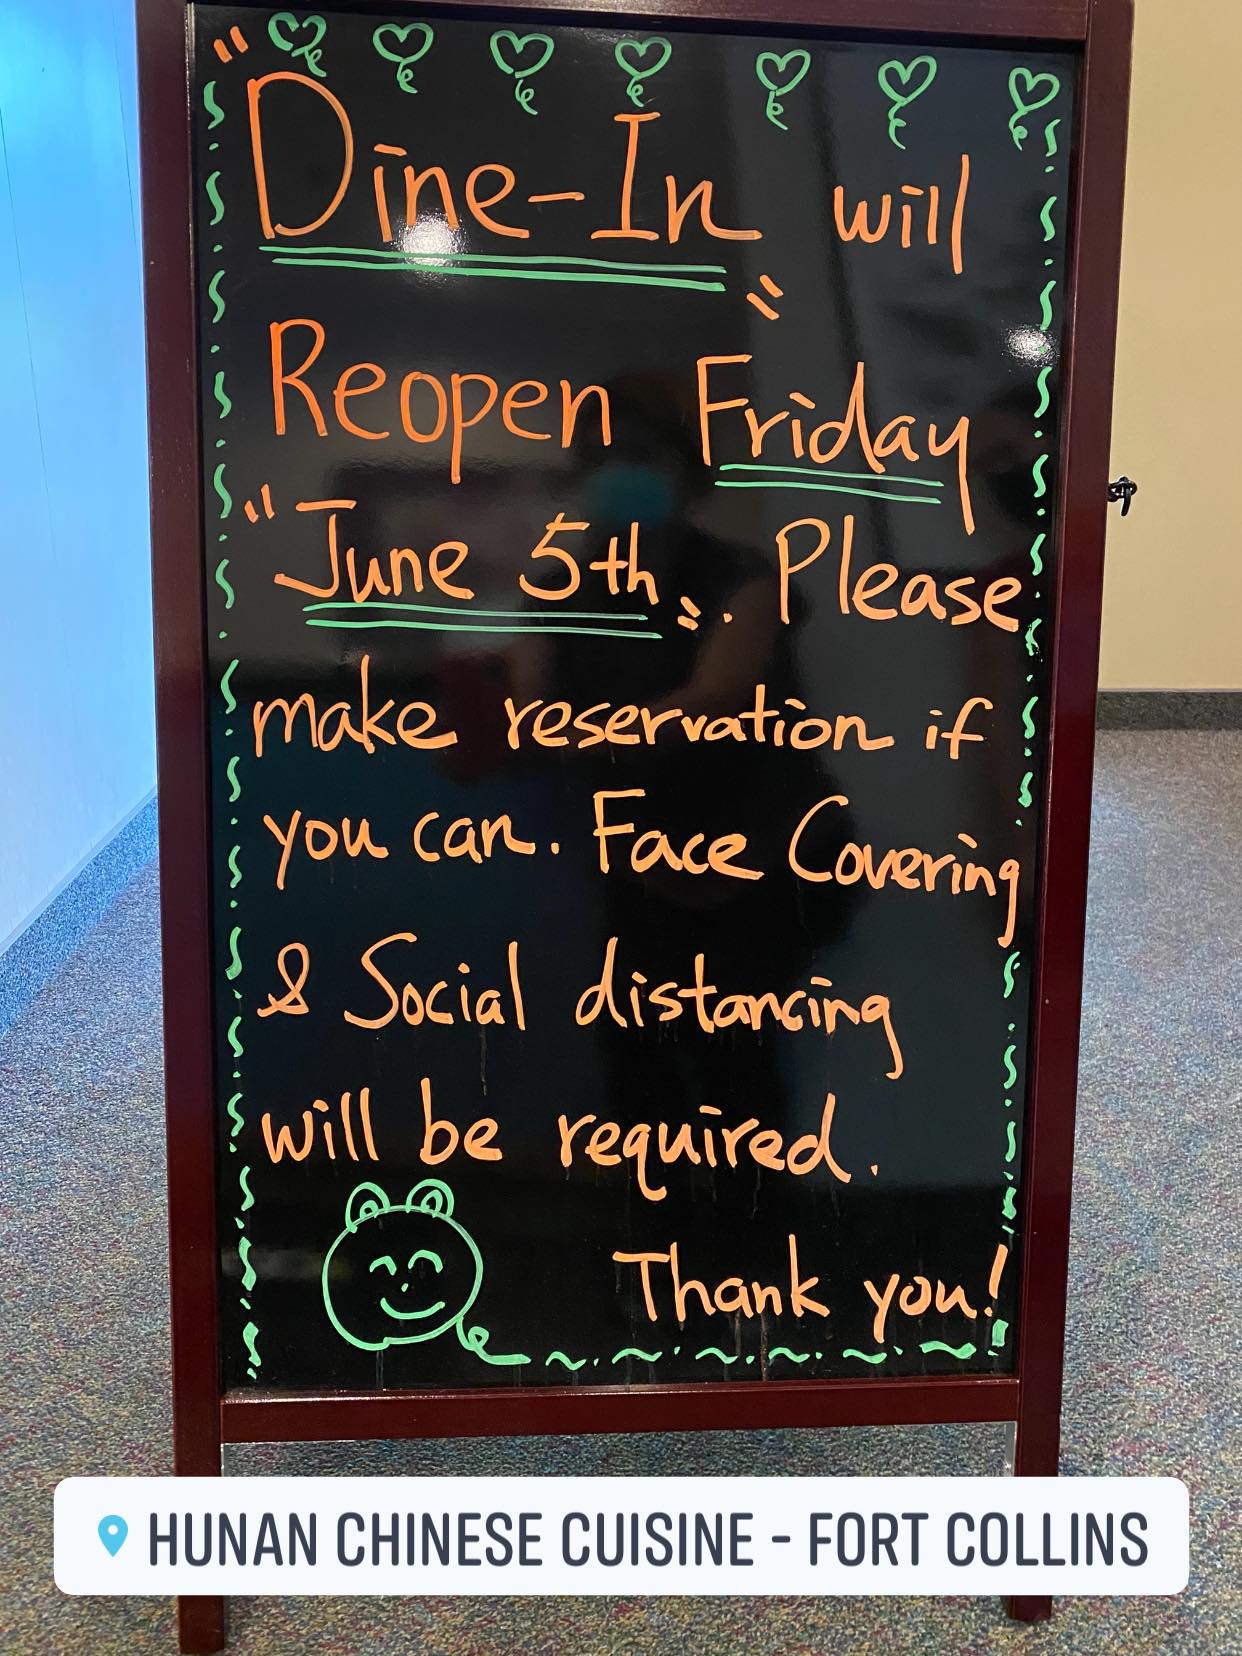 "Dine-In" will
Reopen Friday
"June 5th". Please
make reservation if
you can. Face Covering
& Social distancing
will be required.
Thank you!
HUNAN CHINESE CUISINE - FORT COLLINS